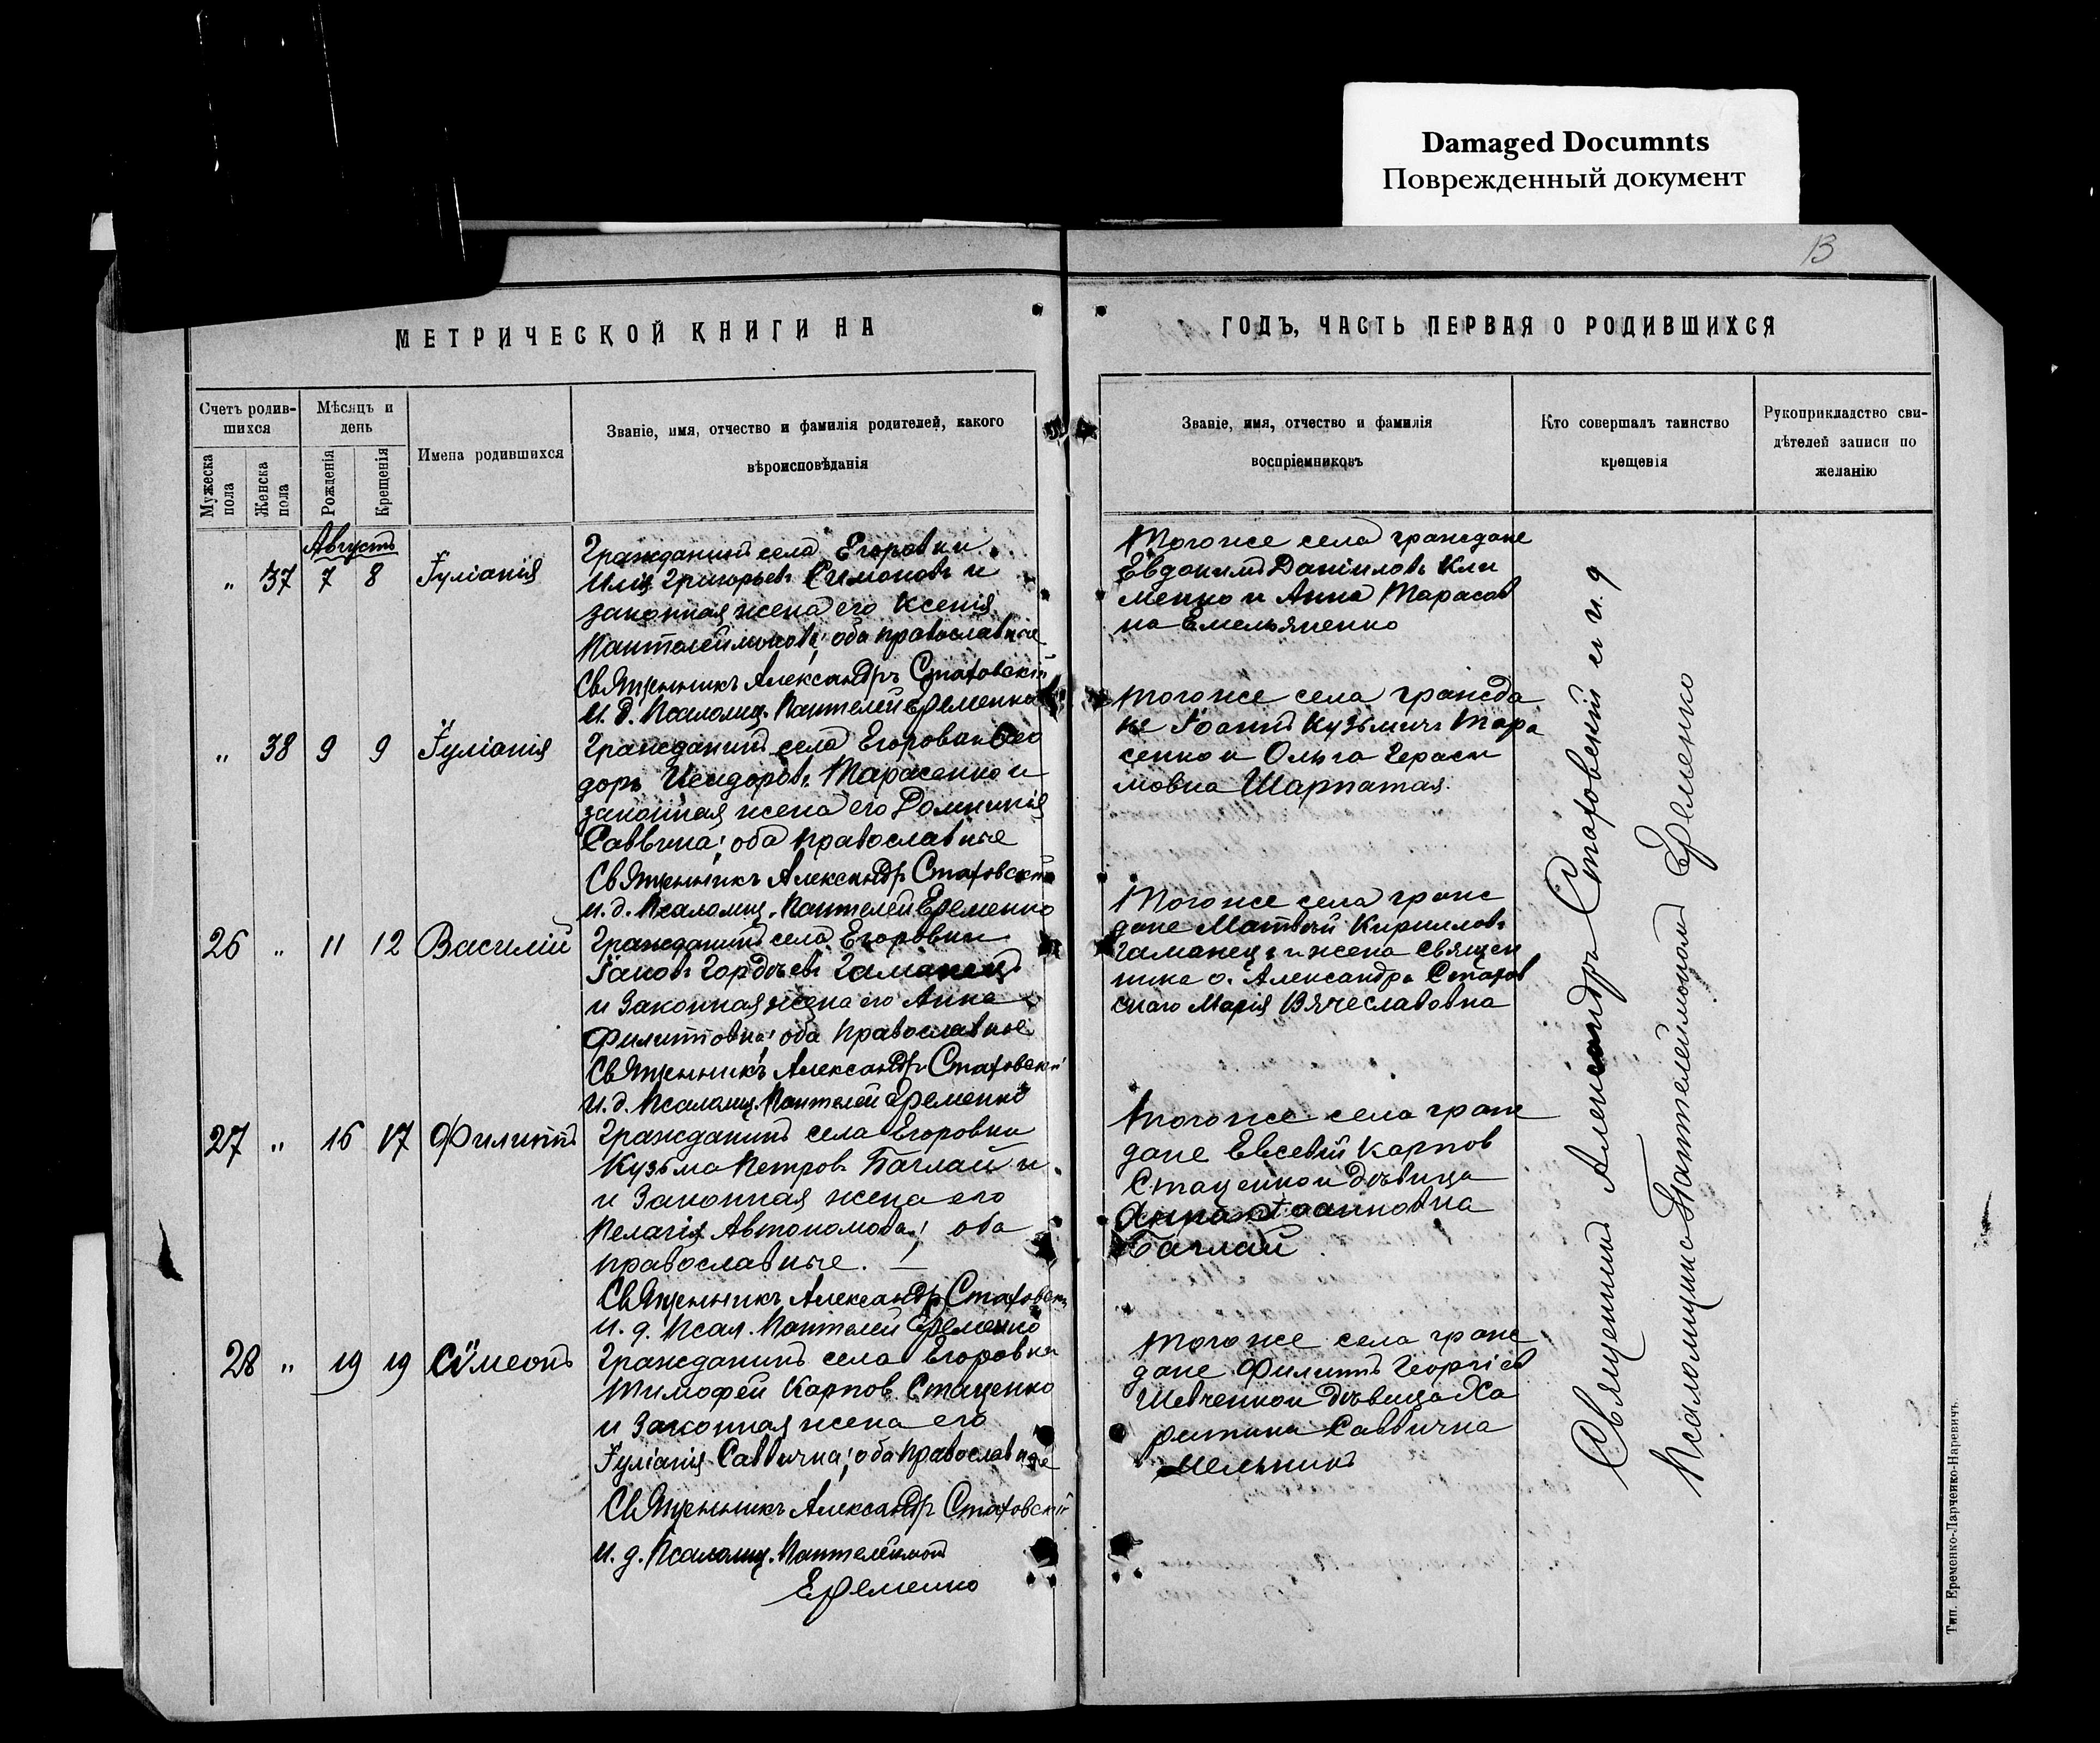 Damaged Documnts
Поврежденный документ
13
МЕТРИЧЕСКОЙ КНИГИ НА
ГОДЪ, ЧАСТЬ ПЕРВАЯ О РОДИВШИХСЯ
Счетъ родив-
шихся
Мужеска
пола
Женска
пола
Мѣсяцъ и
день
Рожденія
Крещенія
Имена родившихся
Званіе, имя, отчество и фамилія родителей, какого
вѣроисповѣданія
Званіе, имя, отчество и фамилія
воспріемниковъ
Кто совершалъ таинство
крещенія
Рукоприкладство сви-
дѣтелей записи по
желанію
Августъ
" 37 7 8 Іуліанія
Гражданинъ села Егоровки
Илія Григорьевъ Симоновъ и
законная жена его Ксенія
Пантелеймонов; оба православные
Священникъ Александръ Стаховскій
И. д. Псаломщ. Пантелей Еременко
Того же села граждане
Евдокимъ Даніиловъ Кли
менко и Анна Тарасов
на Емельяненко
" 38 9 9 Іуліанія
Гражданинъ села Егоровки Ѳео
доръ Исидоровъ Тарасенко и
законная жена его Домникія
Саввична; оба православные
Священникъ Александръ Стаховскій
И. д. Псаломщ. Пантелей Еременко
Того же села гражда
не Іоаннъ Кузьмичъ Тара
сенко и Ольга Гераси
мовна Шарпатая.
26 " 11 12 Василій
Гражданинъ села Егоровки
Іаковъ Гордѣевъ Гаманецъ
и Законная жена его Анна
Филипповна; оба православные
Священникъ Александръ Стаховскій
И. д. Псаломщ. Пантелей Еременко
Того же села граж
дане Матвѣй Кирилловъ
Гаманецъ и жена священ
ника о. Александра Стахов
скаго Марія Вячеславовна
27 " 16 17 Филиппъ
Гражданинъ села Егоровки
Кузьма Петров Баглай и
и Законная жена его
Пелагія Автономова; оба
православные.
Священникъ Александръ Стаховскій
И. д. Псал. Пантелей Еременко
Того же села граж
дане Евсевій Карпов
Стаценко и дѣвица
Анна Іоанновна
Баглай.
28 " 19 19 Сѵмеонъ
Гражданинъ села Егоровки
Тимофей Карпов Стаценко
и Законная жена его
Іуліанія Саввична; оба православные
Священникъ Александръ Стаховскій
И. д. Псаломщ. Пантелеймон
Еременко
Того же села граж
дане Филиппъ Георгіев
Шевченко и дѣвица Ха
ритина Саввична
Мельникъ
Священникъ Александръ Стаховскій и и. д
Псаломщика Пантелеймонъ Еременко
Тип. Еременко-Ларченко-Наревичъ.